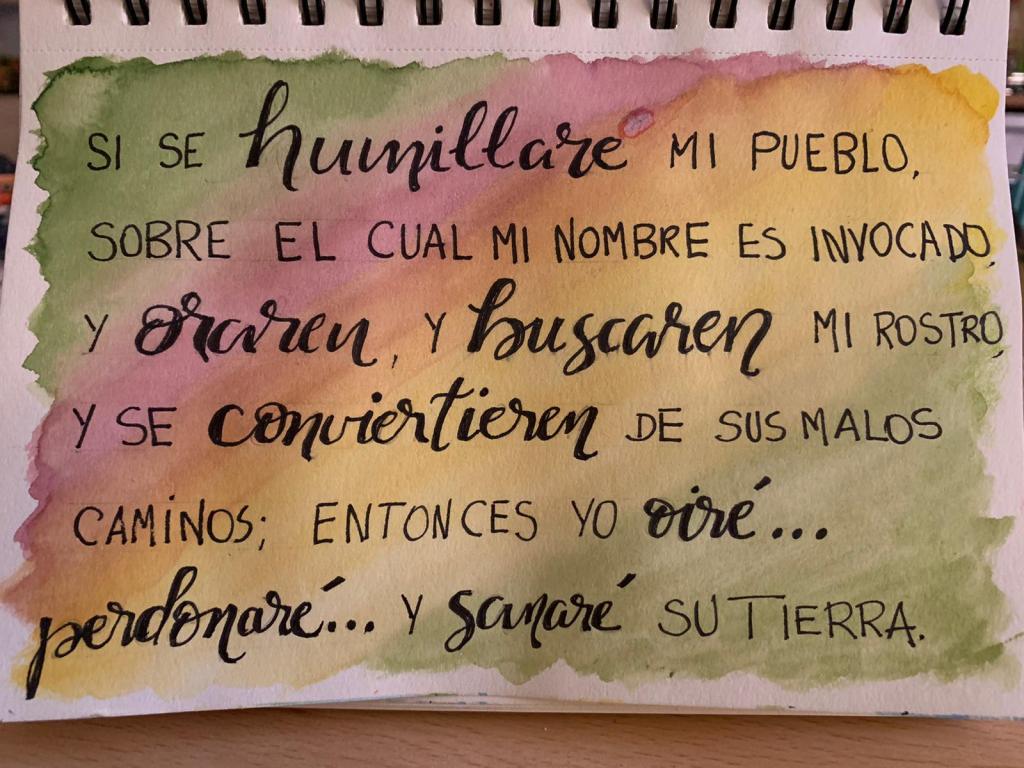 SI SE humillare MI PUEBLO,
SOBRE EL CUAL MI NOMBRE ES INVOCADO,
Y oraren, Y buscaren MI ROSTRO,
Y SE conviertieren DE SUS MALOS
CAMINOS; ENTONCES YO oiré...
perdonaré... Y sanaré SU TIERRA.